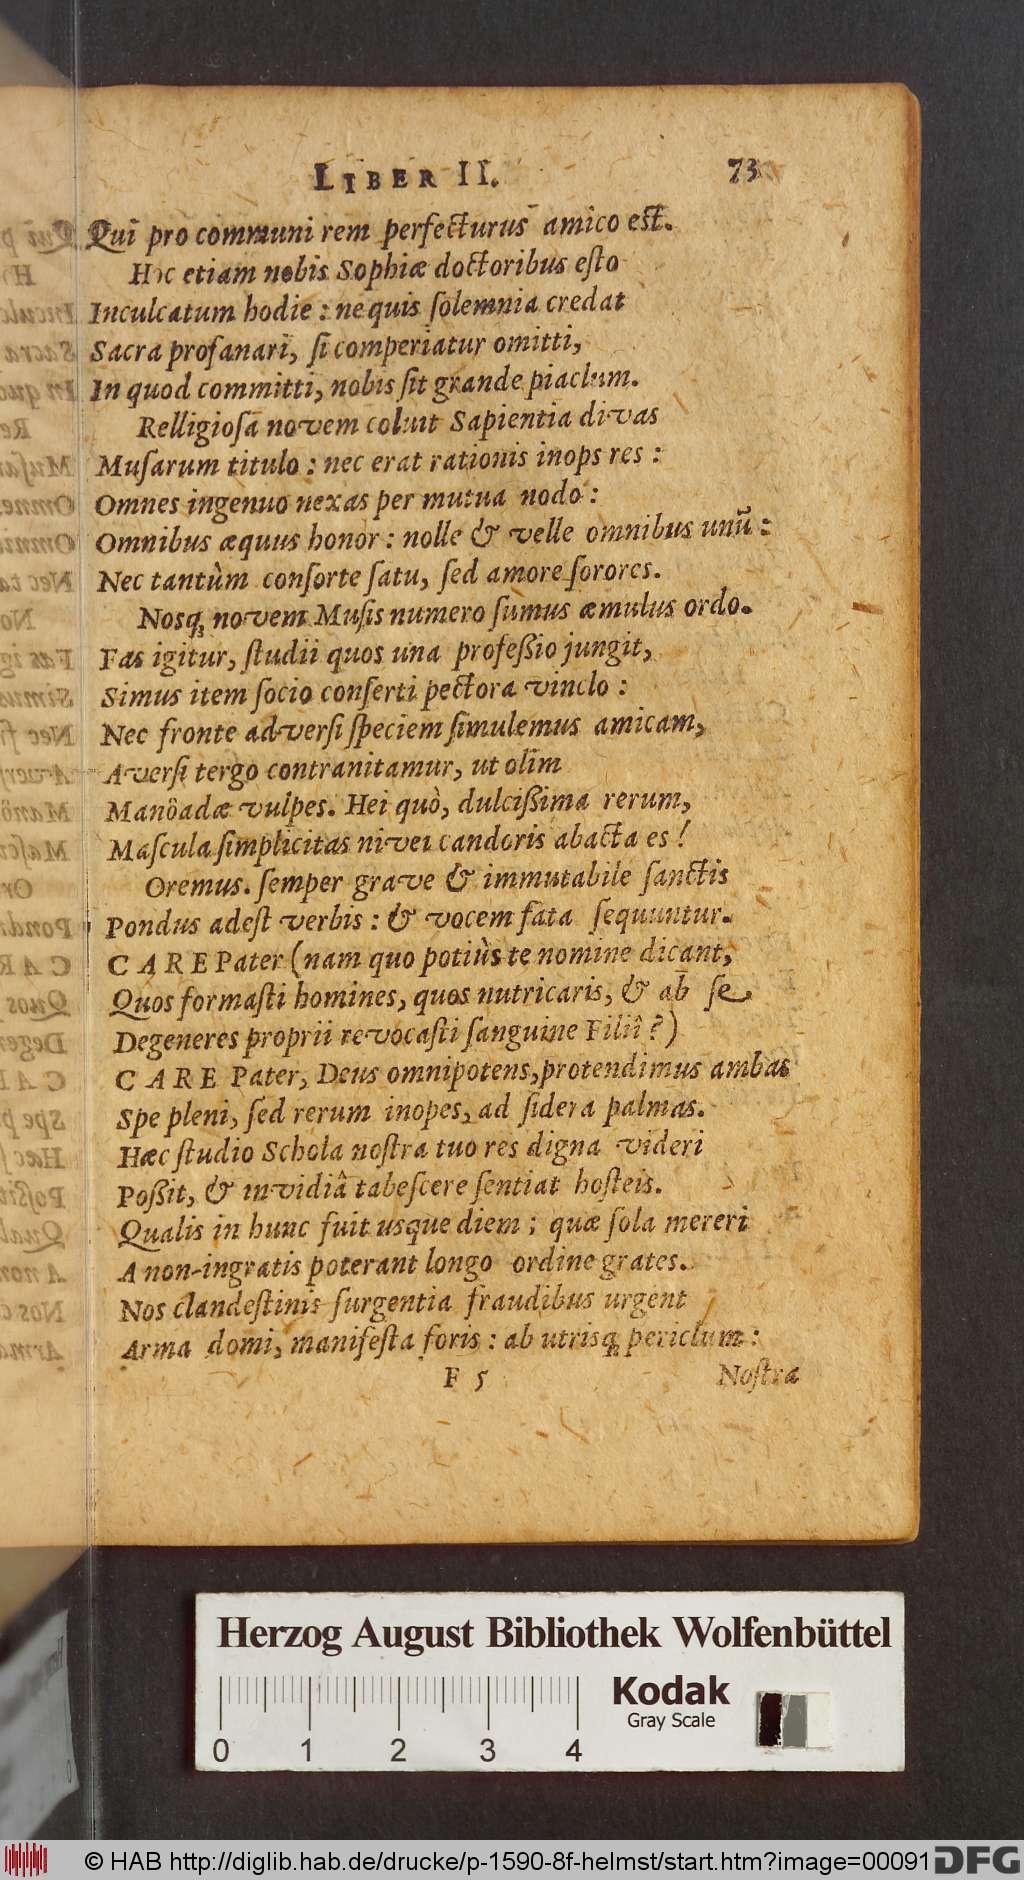 LIBER II. 73
Qui pro communi rem perfecturus amico est.
Hoc etiam nobis Sophiæ doctoribus eſto
Inculcatum hodie: ne quis ſolemnia credat
Sacra profanari, ſi comperiatur omitti,
In quod committi, nobis ſit grande piaclum.
Relligioſa novem coluit Sapientia divas
Muſarum titulo: nec erat rationis inops res:
Omnes ingenuo nexas per mutua nodo:
Omnibus æquus honor: nolle & velle omnibus unū:
Nec tantùm conſorte ſatu, ſed amore ſorores.
Nosq; novem Muſis numero ſumus æmulus ordo.
Fas igitur, ſtudii quos una profeßio jungit,
Simus item ſocio conſerti pectora vinclo:
Nec fronte adverſi ſpeciem ſimulemus amicam,
Averſi tergo contranitamur, ut olim
Manôadæ vulpes. Hei quò, dulcißima rerum,
Maſcula ſimplicitas nivei candoris abacta es!
Oremus. ſemper grave & immutabile ſanctis
Pondus adeſt verbis: & vocem fata ſequuntur.
CARE Pater (nam quo potiùs te nomine dicant,
Quos formaſti homines, quos nutricaris, & ab ſe
Degeneres proprii revocaſti ſanguine Filii?)
CARE Pater, Deus omnipotens, protendimus ambas
Spe pleni, ſed rerum inopes, ad ſidera palmas.
Hæc ſtudio Schola noſtra tuo res digna videri
Poßit, & invidiâ tabeſcere ſentiat hoſteis.
Qualis in hunc fuit usque diem; quæ ſola mereri
A non-ingratis poterant longo ordine grates.
Nos clandeſtinis ſurgentia fraudibus urgent
Arma domi, manifeſta foris: ab utrisq; periclum:
F 5 Noſtra
Herzog August Bibliothek Wolfenbüttel
Kodak
Gray Scale
0 1 2 3 4
© HAB http://diglib.hab.de/drucke/p-1590-8f-helmst/start.htm?image=00091 DFG